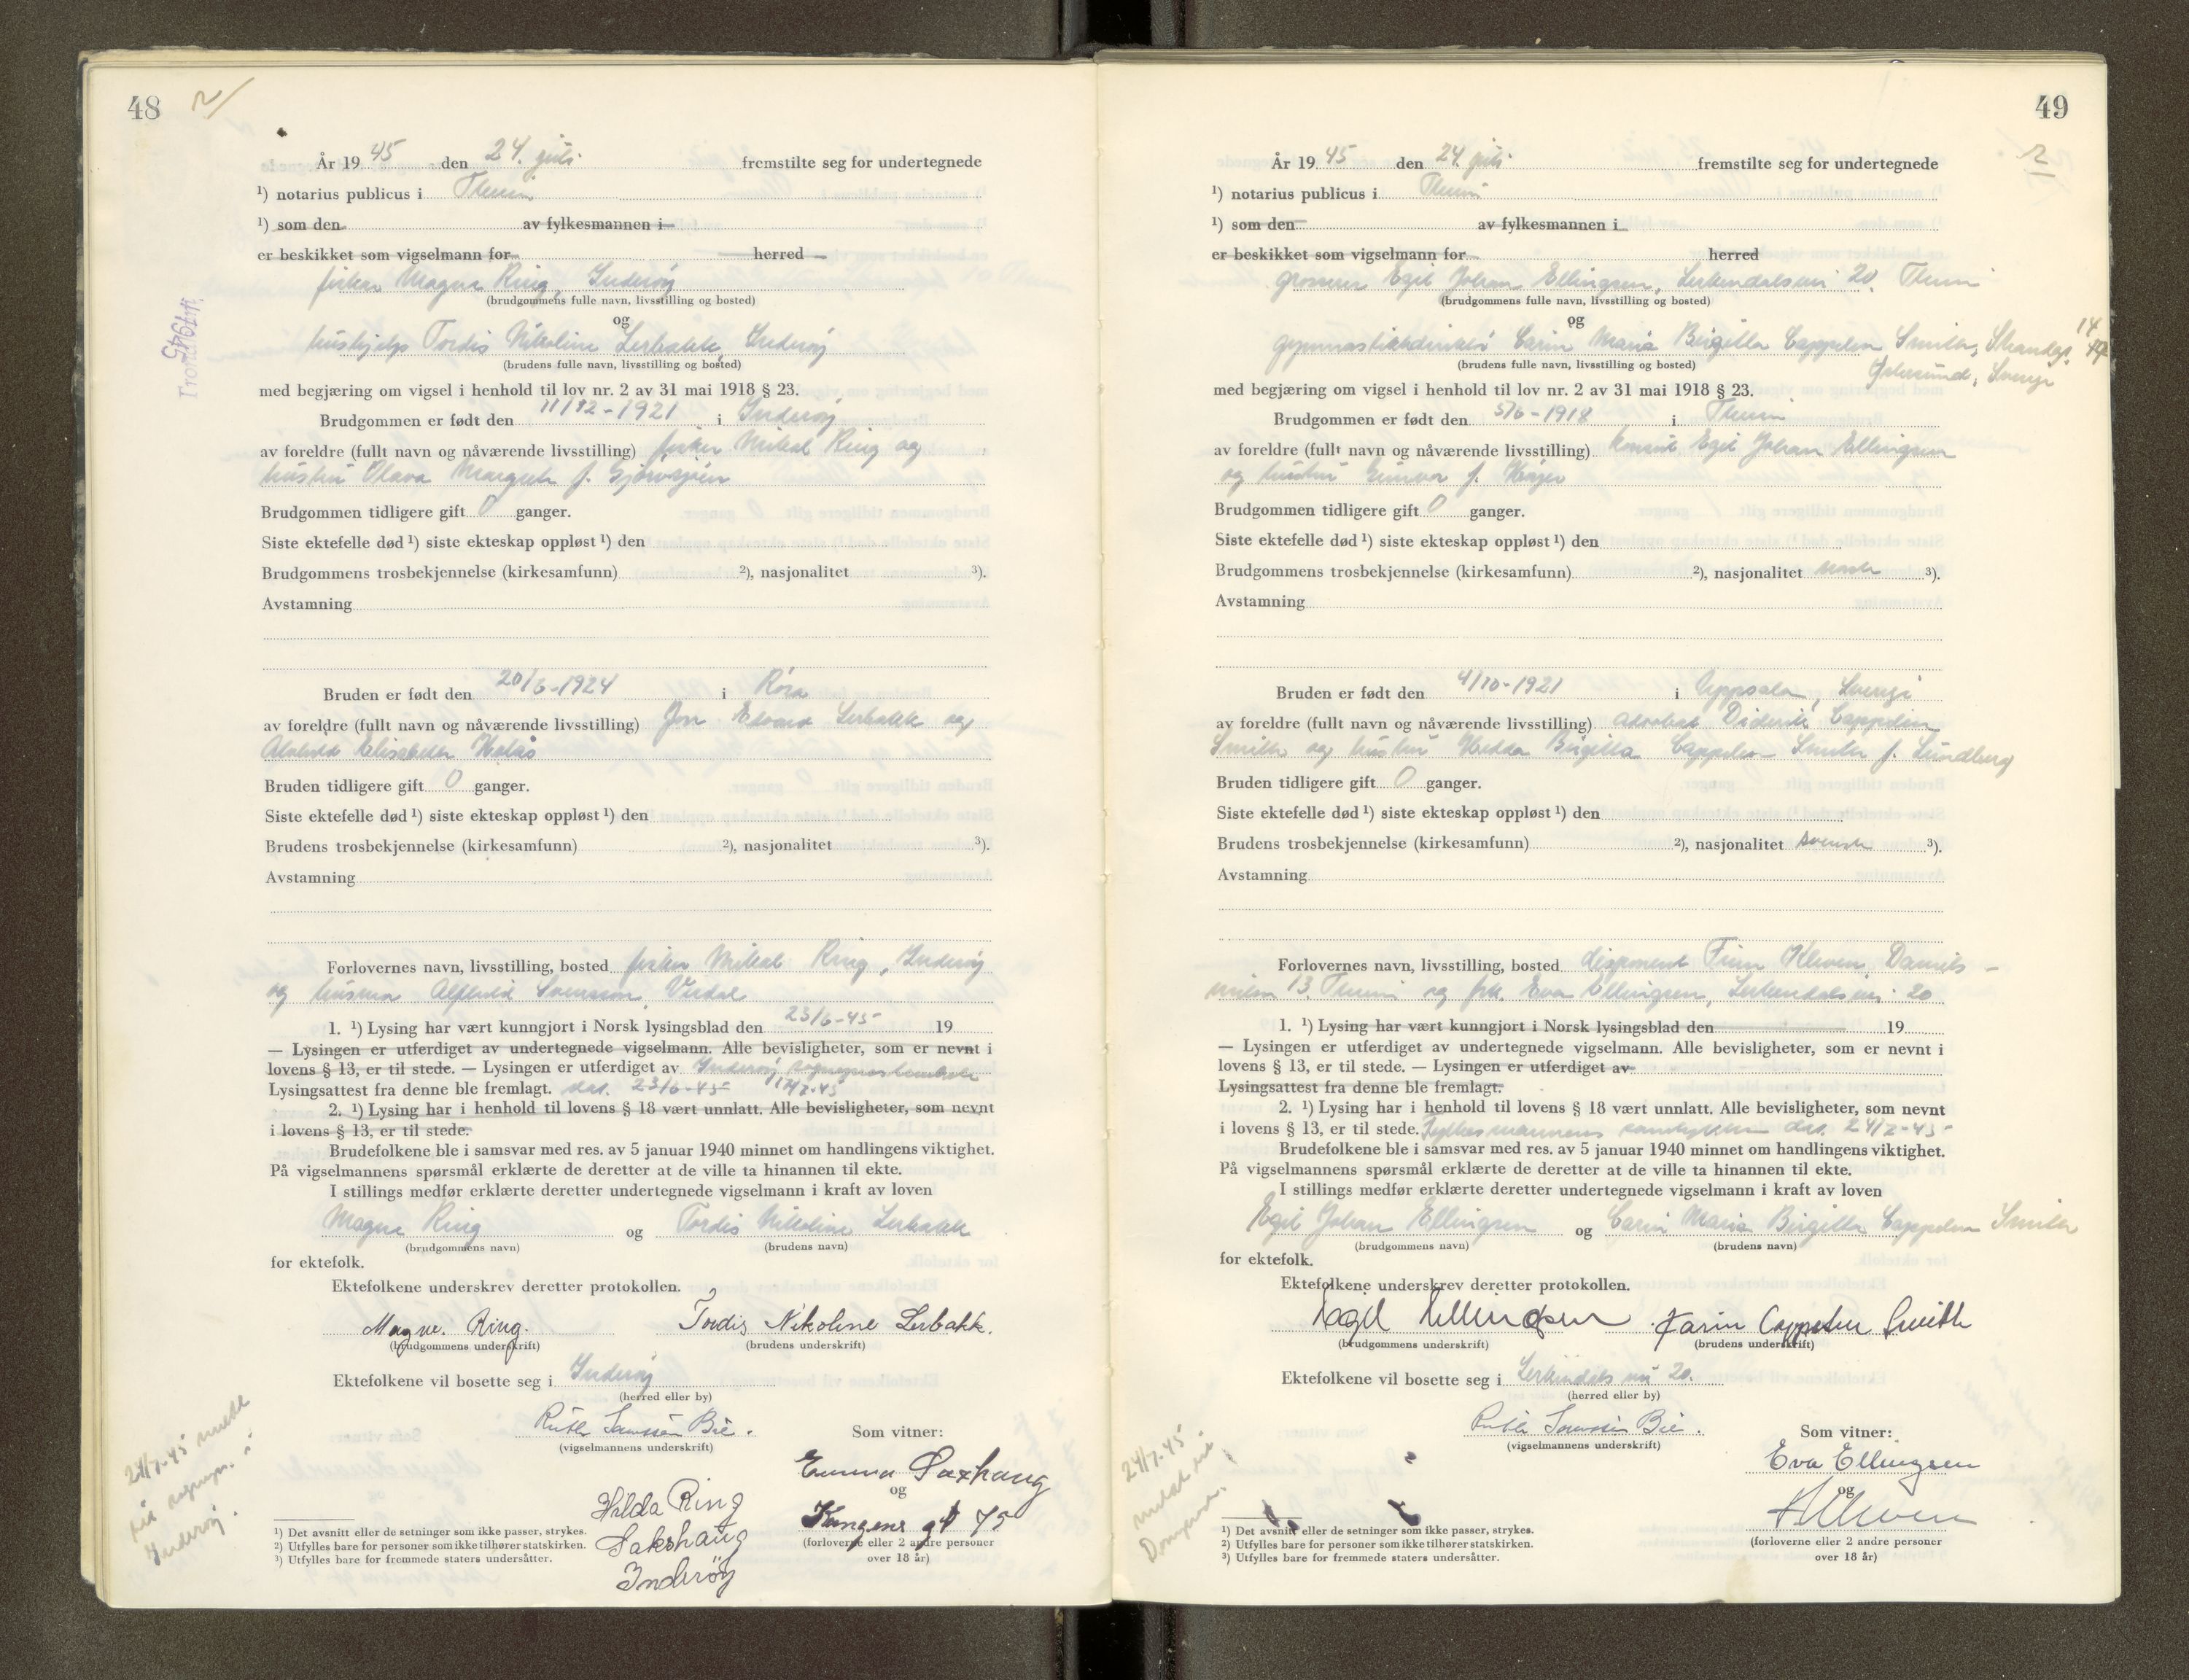 48
År 1945 den 24. juli fremstilte seg for undertegnede
¹) notarius publicus i Thrm
¹) som den av fylkesmannen i
er beskikket som vigselmann for herred
fisker Magne Ring, Inderøy
(brudgommens fulle navn, livsstilling og bosted)
og
hushjelp Tordis Nikoline Lerbakk, Inderøy
(brudens fulle navn, livsstilling og bosted)
med begjæring om vigsel i henhold til lov nr. 2 av 31 mai 1918 § 23.
Brudgommen er født den 11/12-1921 i Inderøy
av foreldre (fullt navn og nåværende livsstilling) fisker Mikal Ring og
hustru Olava Margrete f.
Brudgommen tidligere gift 0 ganger.
Siste ektefelle død ¹) siste ekteskap oppløst ¹) den
Brudgommens trosbekjennelse (kirkesamfunn) ²), nasjonalitet ³).
Avstamning
Bruden er født den 20/6-1924 i Røra
av foreldre (fullt navn og nåværende livsstilling) Jon Edvard Lerbakk og
Alvhild Elisabeth
Bruden tidligere gift 0 ganger.
Siste ektefelle død ¹) siste ekteskap oppløst ¹) den
Brudens trosbekjennelse (kirkesamfunn) ²), nasjonalitet ³).
Avstamning
Forlovernes navn, livsstilling, bosted fisker Mikal Ring, Inderøy
og husmor Alfhild Svensson, Verdal
1. ¹) Lysing har vært kunngjort i Norsk lysingsblad den 23/6-45 19
— Lysingen er utferdiget av undertegnede vigselmann. Alle bevisligheter, som er nevnt i
lovens § 13, er til stede. — Lysingen er utferdiget av Inderøy sogneprestembete
Lysingsattest fra denne ble fremlagt. dat. 23/6-45
2. ¹) Lysing har i henhold til lovens § 18 vært unnlatt. Alle bevisligheter, som nevnt
i lovens § 13, er til stede.
Brudefolkene ble i samsvar med res. av 5 januar 1940 minnet om handlingens viktighet.
På vigselmannens spørsmål erklærte de deretter at de ville ta hinannen til ekte.
I stillings medfør erklærte deretter undertegnede vigselmann i kraft av loven
Magne Ring og Tordis Nikoline Lerbakk
(brudgommens navn) (brudens navn)
for ektefolk.
Ektefolkene underskrev deretter protokollen.
Magne. Ring. Tordis Nikoline Lerbakk.
(brudgommens underskrift) (brudens underskrift)
Ektefolkene vil bosette seg i Inderøy
(herred eller by)
Ruth Bie.
(vigselmannens underskrift)
Som vitner:
Emma Saxhaug
og
Kongens gt 75
(forloverne eller 2 andre personer
over 18 år)
Hilda Ring
Sakshaug
Inderøy
24/7-45 meldt
til sognepr. i
Inderøy.
¹) Det avsnitt eller de setninger som ikke passer, strykes.
²) Utfylles bare for personer som ikke tilhører statskirken.
³) Utfylles bare for fremmede staters undersåtter.
49
År 1945 den 24. juli fremstilte seg for undertegnede
¹) notarius publicus i Thrm
¹) som den av fylkesmannen i
er beskikket som vigselmann for herred
grosserer Egil Johan Ellingsen, Lerkendalsvei 20, Thrm
(brudgommens fulle navn, livsstilling og bosted)
og
gymnastikkdirektør Carin Maria Birgitta Cappelen Smith, Strandgt. 14
Østersund, Sverige
(brudens fulle navn, livsstilling og bosted)
med begjæring om vigsel i henhold til lov nr. 2 av 31 mai 1918 § 23.
Brudgommen er født den 5/6-1918 i Thrm
av foreldre (fullt navn og nåværende livsstilling) konsul Egil Johan Ellingsen
og hustru Gunvor f.
Brudgommen tidligere gift 0 ganger.
Siste ektefelle død ¹) siste ekteskap oppløst ¹) den
Brudgommens trosbekjennelse (kirkesamfunn) ²), nasjonalitet norsk ³).
Avstamning
Bruden er født den 4/10-1921 i Uppsala, Sverige
av foreldre (fullt navn og nåværende livsstilling) advokat Diderik Cappelen
Smith og hustru Hedda Birgitta Cappelen Smith f. Lundberg
Bruden tidligere gift 0 ganger.
Siste ektefelle død ¹) siste ekteskap oppløst ¹) den
Brudens trosbekjennelse (kirkesamfunn) ²), nasjonalitet svensk ³).
Avstamning
Forlovernes navn, livsstilling, bosted disponent Finn Kleven, Daniels-
veien 13, Thrm og frk. Eva Ellingsen, Lerkendalsvei 20
1. ¹) Lysing har vært kunngjort i Norsk lysingsblad den 19
— Lysingen er utferdiget av undertegnede vigselmann. Alle bevisligheter, som er nevnt i
lovens § 13, er til stede. — Lysingen er utferdiget av
Lysingsattest fra denne ble fremlagt.
2. ¹) Lysing har i henhold til lovens § 18 vært unnlatt. Alle bevisligheter, som nevnt
i lovens § 13, er til stede. Fylkesmannens samtykke dat. 24/7-45
Brudefolkene ble i samsvar med res. av 5 januar 1940 minnet om handlingens viktighet.
På vigselmannens spørsmål erklærte de deretter at de ville ta hinannen til ekte.
I stillings medfør erklærte deretter undertegnede vigselmann i kraft av loven
Egil Johan Ellingsen og Carin Maria Birgitta Cappelen Smith
(brudgommens navn) (brudens navn)
for ektefolk.
Ektefolkene underskrev deretter protokollen.
Egil Ellingsen Karin Cappelen Smith
(brudgommens underskrift) (brudens underskrift)
Ektefolkene vil bosette seg i Lerkendals vei 20.
(herred eller by)
Ruth Bie.
(vigselmannens underskrift)
Som vitner:
Eva Ellingsen
og
(forloverne eller 2 andre personer
over 18 år)
24/7-45
meldt til
¹) Det avsnitt eller de setninger som ikke passer, strykes.
²) Utfylles bare for personer som ikke tilhører statskirken.
³) Utfylles bare for fremmede staters undersåtter.